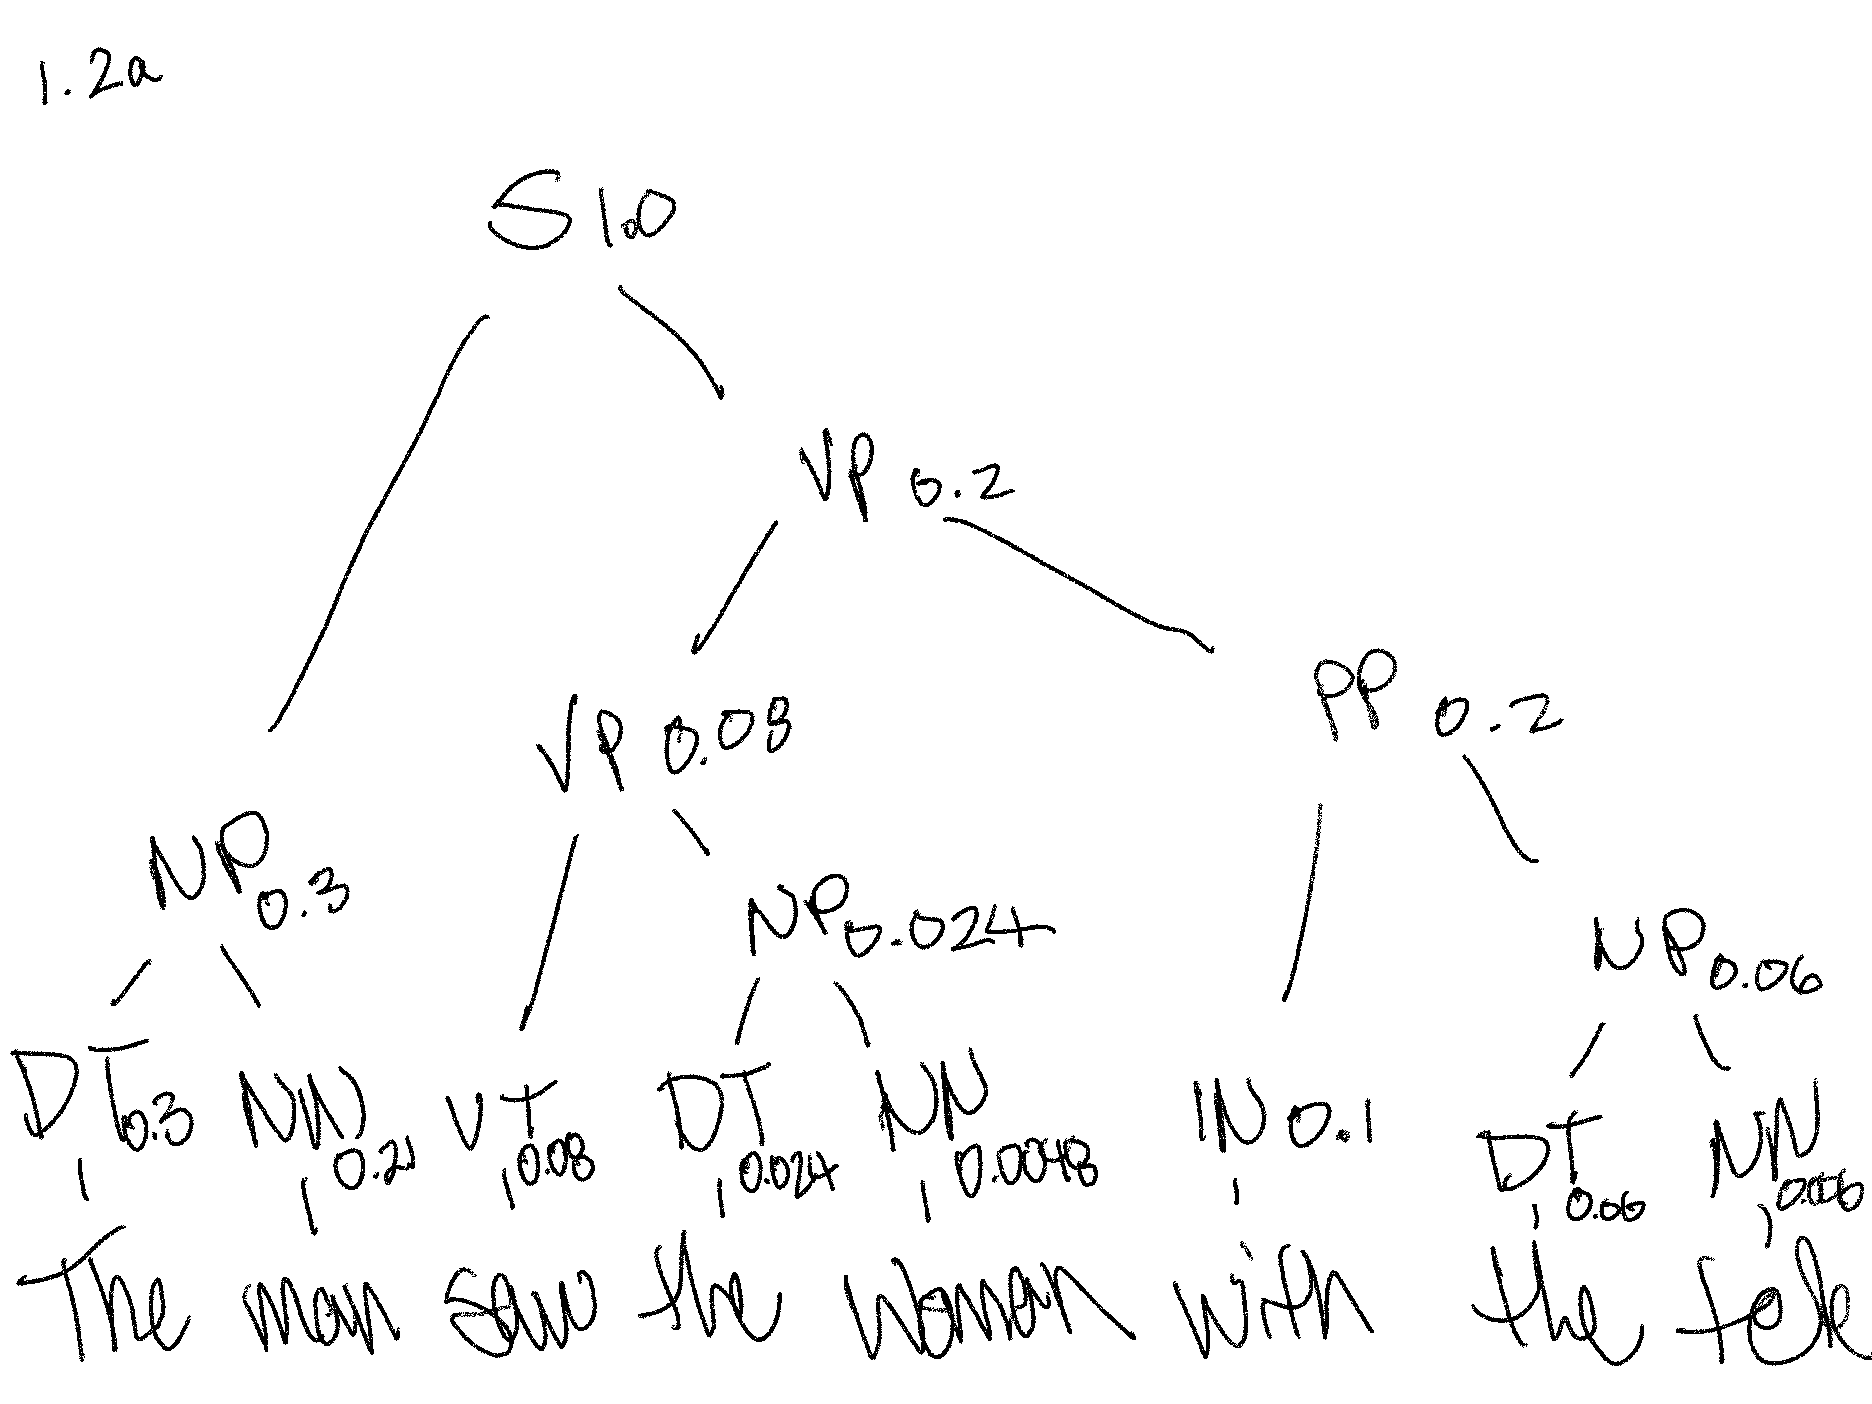 1.2a
S 1.0
VP 0.2
VP 0.08 PP 0.2
NP 0.3 NP 0.024 NP 0.06
DT 0.3 NN 0.21 VT 0.08 DT 0.024 NN 0.0048 IN 0.1 DT 0.06 NN 0.006
The man saw the woman with the tele